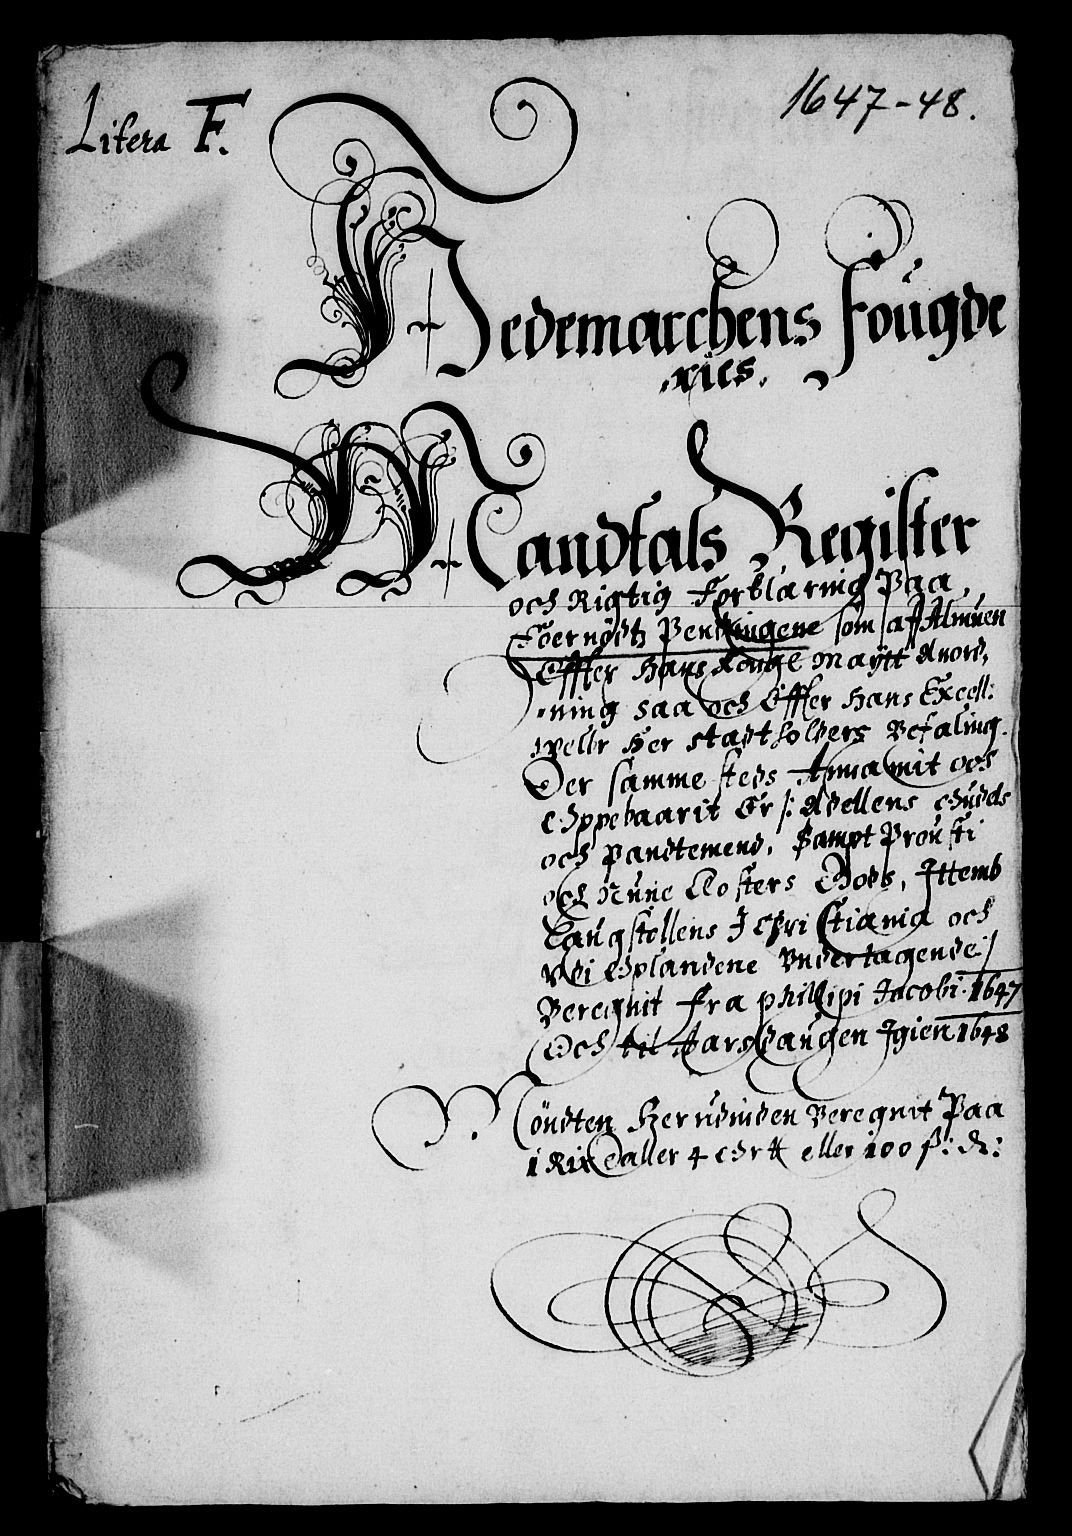 Litera F.
1647-48.
Hedemarchens Fougde
ries.
Mandtals Register
och Rigtig Forklaring Paa
Pendingene som aff Almuen
Effter Hans Kongl Maytt Anord,
ning saa och Effter Hans Excell:
Her Stadtholders Befaling.
Der samme steds Annammit och
Oppebaarit Er /: Adellens Guods
och Pandtemend, Sampt Prousti
och Nune Closters Gods, Ittemb
Laugstollens I Christiania och
Wdi Oplandene Vndertagende :/
Beregnit Fra Phillipi Jacobi 1647
Och til Aarsdaugen Igien 1648
Möndten Herudinden Beregnit Paa
1 Rix Daller 4 ort eller 100 ß: d: